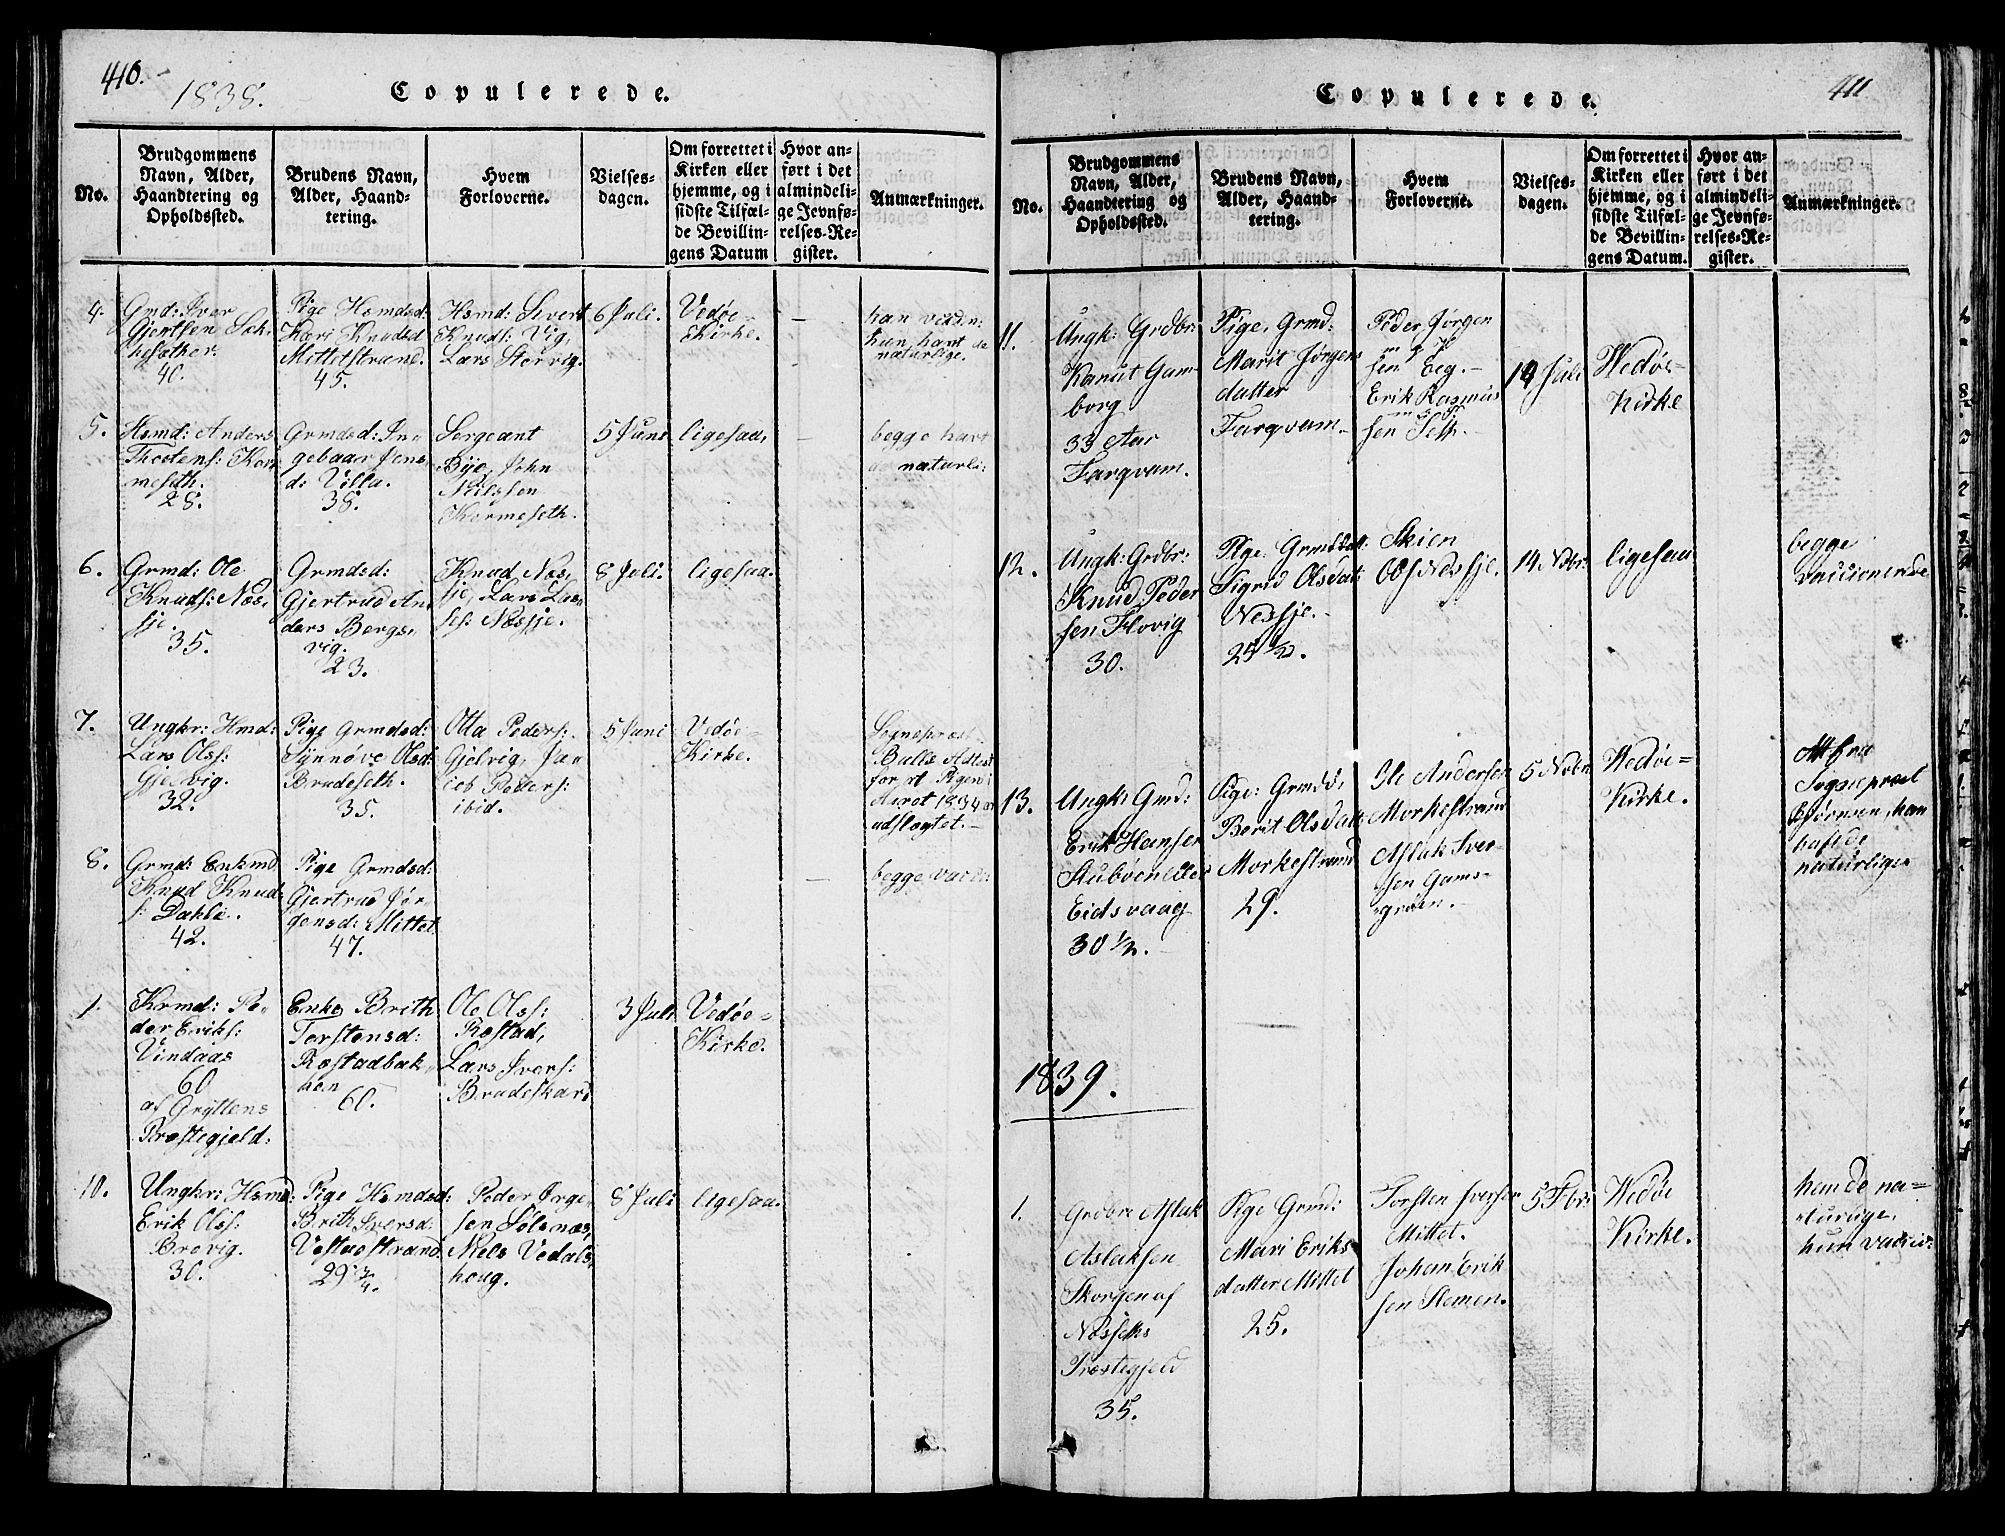 410.
1838.
Copulerede.
No.
Brudgommens
Navn, Alder,
Haandtering og
Opholdssted.
Brudens Navn,
Alder, Haand-
tering.
Hvem
Forloverne.
Vielses-
dagen.
Om forrettet i
Kirken eller
hjemme, og i
sidste Tilfæl-
de Bevillin-
gens Datum
Hvor an-
ført i det
almindeli-
ge Jevnfø-
relses-Re-
gister.
Anmærkninger.
4.
Gmd: Iver
Gjertsen
40.
Pige Hsmdsd:
Kari Knudsd
Mittetstrand.
45.
Hsmd: Sivert
Knuds: Vig,
Lars Storvig.
6 Juli.
Vedøe
Kirke.
–
han
hun, havt de
naturlige.
5.
Hsmd: Anders
28.
Grmdsd: In-
gebaar Jens
d: Villa.
38.
Sergeant
Bye, John
Nilssen
Kormeseth.
5 Juni
ligesaa,
–
begge havt
naturli:
6.
Grmd: Ole
Knuds: Nes,
sje.
35.
Grmdsd:
Gjertrud An
ders Bergs,
vig.
23.
Knud Nes,
sje, Lars Lar,
ss: Nessje.
8 Juli.
ligesaa.
7.
Ungkr: Hmd:
Lars Olss:
Gjelvig.
32.
Pige Grmdsd:
Synnøve Olsd:
Brudeseth.
35.
Otta Peders:
Gjelvig, Ja,
cob Peders:
ibid.
5 Juni
Vedøe-
Kirke.
Sognepræst
Bulls Attest
for at Pigen i
Aaret 1834 er
udslogtet.–
8.
Grmd: Enkmd
Knud Knud
s: Dahle.
42.
Pige Grmdsd:
Gjertrud Jør
gensd: Mittet
47.
–
begge
1.
Krmd: Pe-
der Eriks:
Vindaas
60
af Gryttens
Præstegjeld:
Enke Brith
Torstensd:
Røstadbak,
ken
60.
Ole Olss:
Røstad,
Lars Ivers:
Brudeskard
3 Juli
Vedøe-
Kirke.
10.
Ungkr: Hsmd:
Erik Olss:
Brovig.
30.
Pige Hsmdsd:
Brith Iversd:
29 3/4.
Peder Jørge,
sen Sølsnæs,
Niels Vedals,
houg.
8 Juli
ligesaa.
411
Copulerede.
No.
Brudgommens
Navn, Alder,
Haandtering og
Opholdssted.
Brudens Navn,
Alder, Haand-
tering.
Hvem
Forloverne.
Vielses-
dagen.
Om forrettet i
Kirken eller
hjemme, og i
sidste Tilfæl-
de Bevillin-
gens Datum.
Hvor an-
ført i det
almindeli-
ge Jevnfø-
relses-Re-
gister.
Anmærkninger.
11.
Ungk: Grdbr:
Kanut Gam-
borg
33 Aar
Farqvam.
Pige, Grmd:
Marit Jørgens
datter
Farqvam–
Peder Jørgen
sen Eeg.–
Erik Rasmus
sen Seth.–
14 Juli
Wedøe-
Kirke
12.
Ungk: Grdbr:
Knud Peder
sen Flovig
30.
Pige: Grmdsdt:
Sigrid Olsdat:
Nessje.–
25 1/2.
14 Nobr:
ligesaa
begge
vaccionerede
13.
Ungk: Gmd:
Erik Hansen
Stubøen eller
Eidsvaag
30 1/2.–
Pige: Grmdd,
Berit Olsdatt
Morkestrand
29.
Ole Andersen
Morkestrand
Aslak Iver-
sen Gams-
grøen.–
5 Nobr
Wedøe=
Kirke.
Att fra
Sognepræst
Bjørnsen, han
haft de
naturlige
1839.
1.
Grdbr: Aslak
Aslaksen
Skorgen af
Nesseths
Præstegjeld
35.
Pige Grmd:
Mari Eriks
datter Mittet
25.
Torsten Iversen
Mittet.
Johan Erik
sen Slemen.
5 Fbr:
Wedøe
Kirke.
han de na=
turlige,
hun